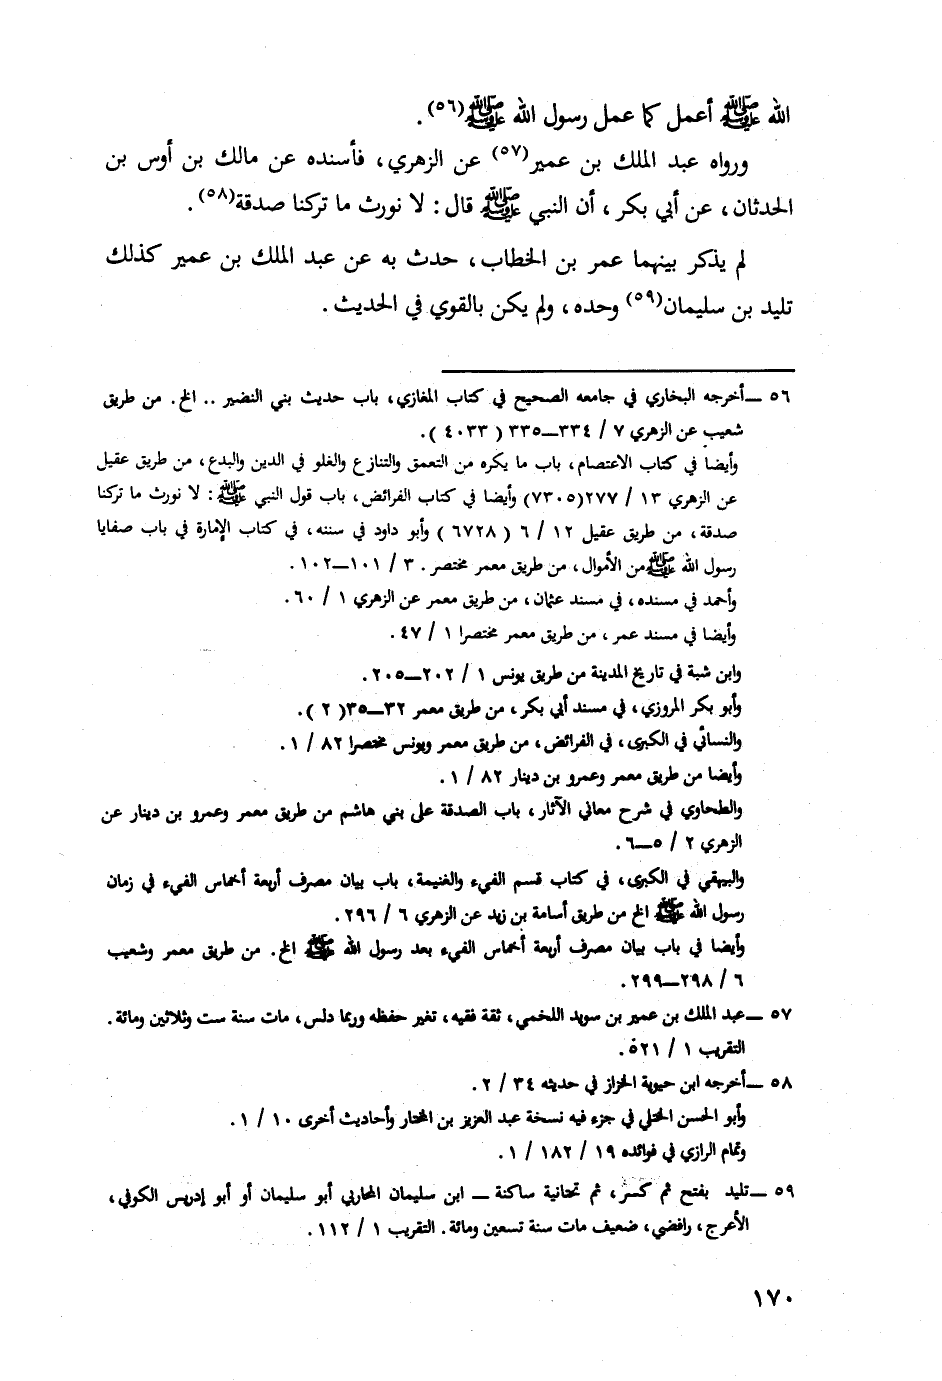 الله ﷺ أعمل كما عمل رسول الله ﷺ(٥٦).
ورواه عبد الملك بن عمير(٥٧) عن الزهري، فأسنده عن مالك بن أوس بن
الحدثان، عن أبي بكر، أن النبي ﷺ قال: لا نورث ما تركنا صدقة(٥٨).
لم يذكر بينهما عمر بن الخطاب، حدث به عن عبد الملك بن عمير كذلك
تليد بن سليمان(٥٩) وحده، ولم يكن بالقوي في الحديث.
٥٦ ــ أخرجه البخاري في جامعه الصحيح في كتاب المغازي، باب حديث بني النضير .. الخ. من طريق
شعيب عن الزهري ٧ / ٣٣٤ــ٣٣٥ ( ٤٠٣٣ ).
وأيضا في كتاب الاعتصام، باب ما يكره من التعمق والتنازع والغلو في الدين والبدع، من طريق عقيل
عن الزهري ١٣ / ٢٧٧(٧٣٠٥) وأيضا في كتاب الفرائض، باب قول النبي ﷺ: لا نورث ما تركنا
صدقة، من طريق عقيل ١٢ / ٦ ( ٦٧٢٨ ) وأبو داود في سننه، في كتاب الإمارة في باب صفايا
رسول الله ﷺ من الأموال، من طريق معمر مختصر. ٣ / ١٠١ــ١٠٢.
وأحمد في مسنده، في مسند عثمان، من طريق معمر عن الزهري ١ / ٦٠.
وأيضا في مسند عمر، من طريق معمر مختصرا ١ / ٤٧.
وابن شبة في تاريخ المدينة من طريق يونس ١ / ٢٠٢ــ٢٠٥.
وأبو بكر المروزي، في مسند أبي بكر، من طريق معمر ٣٢ــ٣٥( ٢ ).
والنسائي في الكبرى، في الفرائض، من طريق معمر ويونس مختصرا ٨٢ / ١.
وأيضا من طريق معمر وعمرو بن دينار ٨٢ / ١.
والطحاوي في شرح معاني الآثار، باب الصدقة على بني هاشم من طريق معمر وعمرو بن دينار عن
الزهري ٢ / ٥ــ٦.
والبيهقي في الكبرى، في كتاب قسم الفيء والغنيمة، باب بيان مصرف أربعة أخماس الفيء في زمان
رسول الله ﷺ الخ من طريق أسامة بن زيد عن الزهري ٦ / ٢٩٦.
وأيضا في باب بيان مصرف أربعة أخماس الفيء بعد رسول الله ﷺ الخ. من طريق معمر وشعيب
٦ / ٢٩٨ــ٢٩٩.
٥٧ ــ عبد الملك بن عمير بن سويد اللخمي، ثقة فقيه، تغير حفظه وربما دلس، مات سنة ست وثلاثين ومائة.
التقريب ١ / ٥٢١.
٥٨ ــ أخرجه ابن حيوية الخزاز في حديثه ٣٤ / ٢.
وأبو الحسن الختلي في جزء فيه نسخة عبد العزيز بن المختار وأحاديث أخرى ١٠ / ١.
وتمام الرازي في فوائده ١٩ / ١٨٢ / ١.
٥٩ ــ تليد بفتح ثم كسر، ثم تحتانية ساكنة ــ ابن سليمان المحاربي أبو سليمان أو أبو إدريس الكوفي،
الأعرج، رافضي، ضعيف مات سنة تسعين ومائة. التقريب ١ / ١١٢.
١٧٠